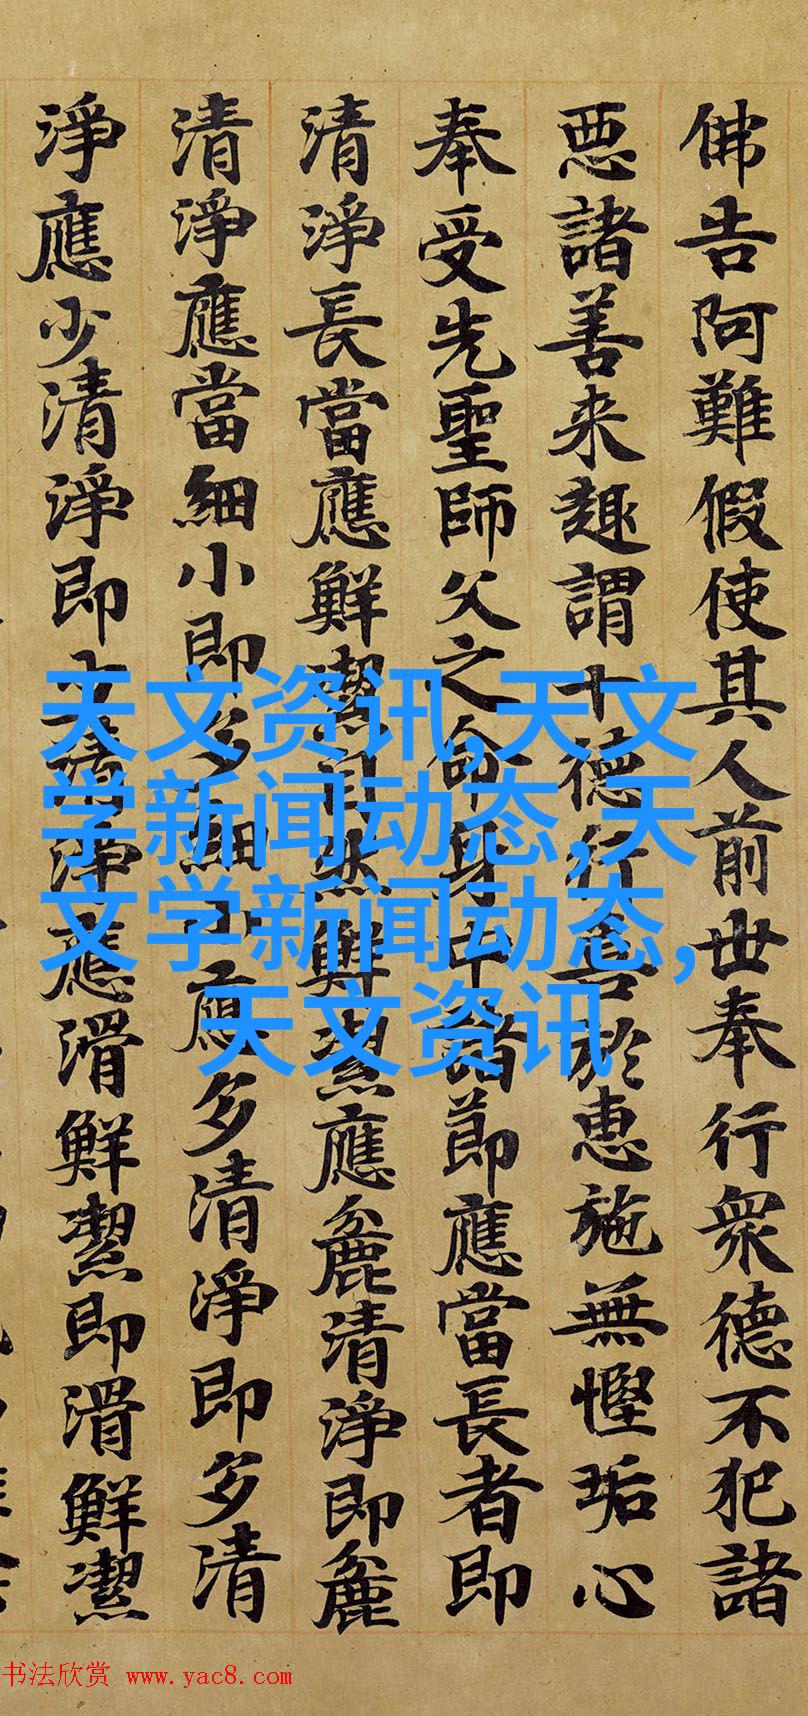 佛告阿難假使其人前世奉行眾德不犯諸
惡諸善来趣謂十德行善於惠施無慳垢心
奉受先聖師父之命身中諸節應當長者即
清淨長當應鮮潔自然鮮潔應麁清淨即麁
清淨應當細小即多細小應多清淨即多清
淨應少清淨即少清淨應滑鮮潔即滑鮮潔
天文资讯,天文
学新闻动态,天
文学新闻动态,
天文资讯
书法欣赏 www.yac8.com